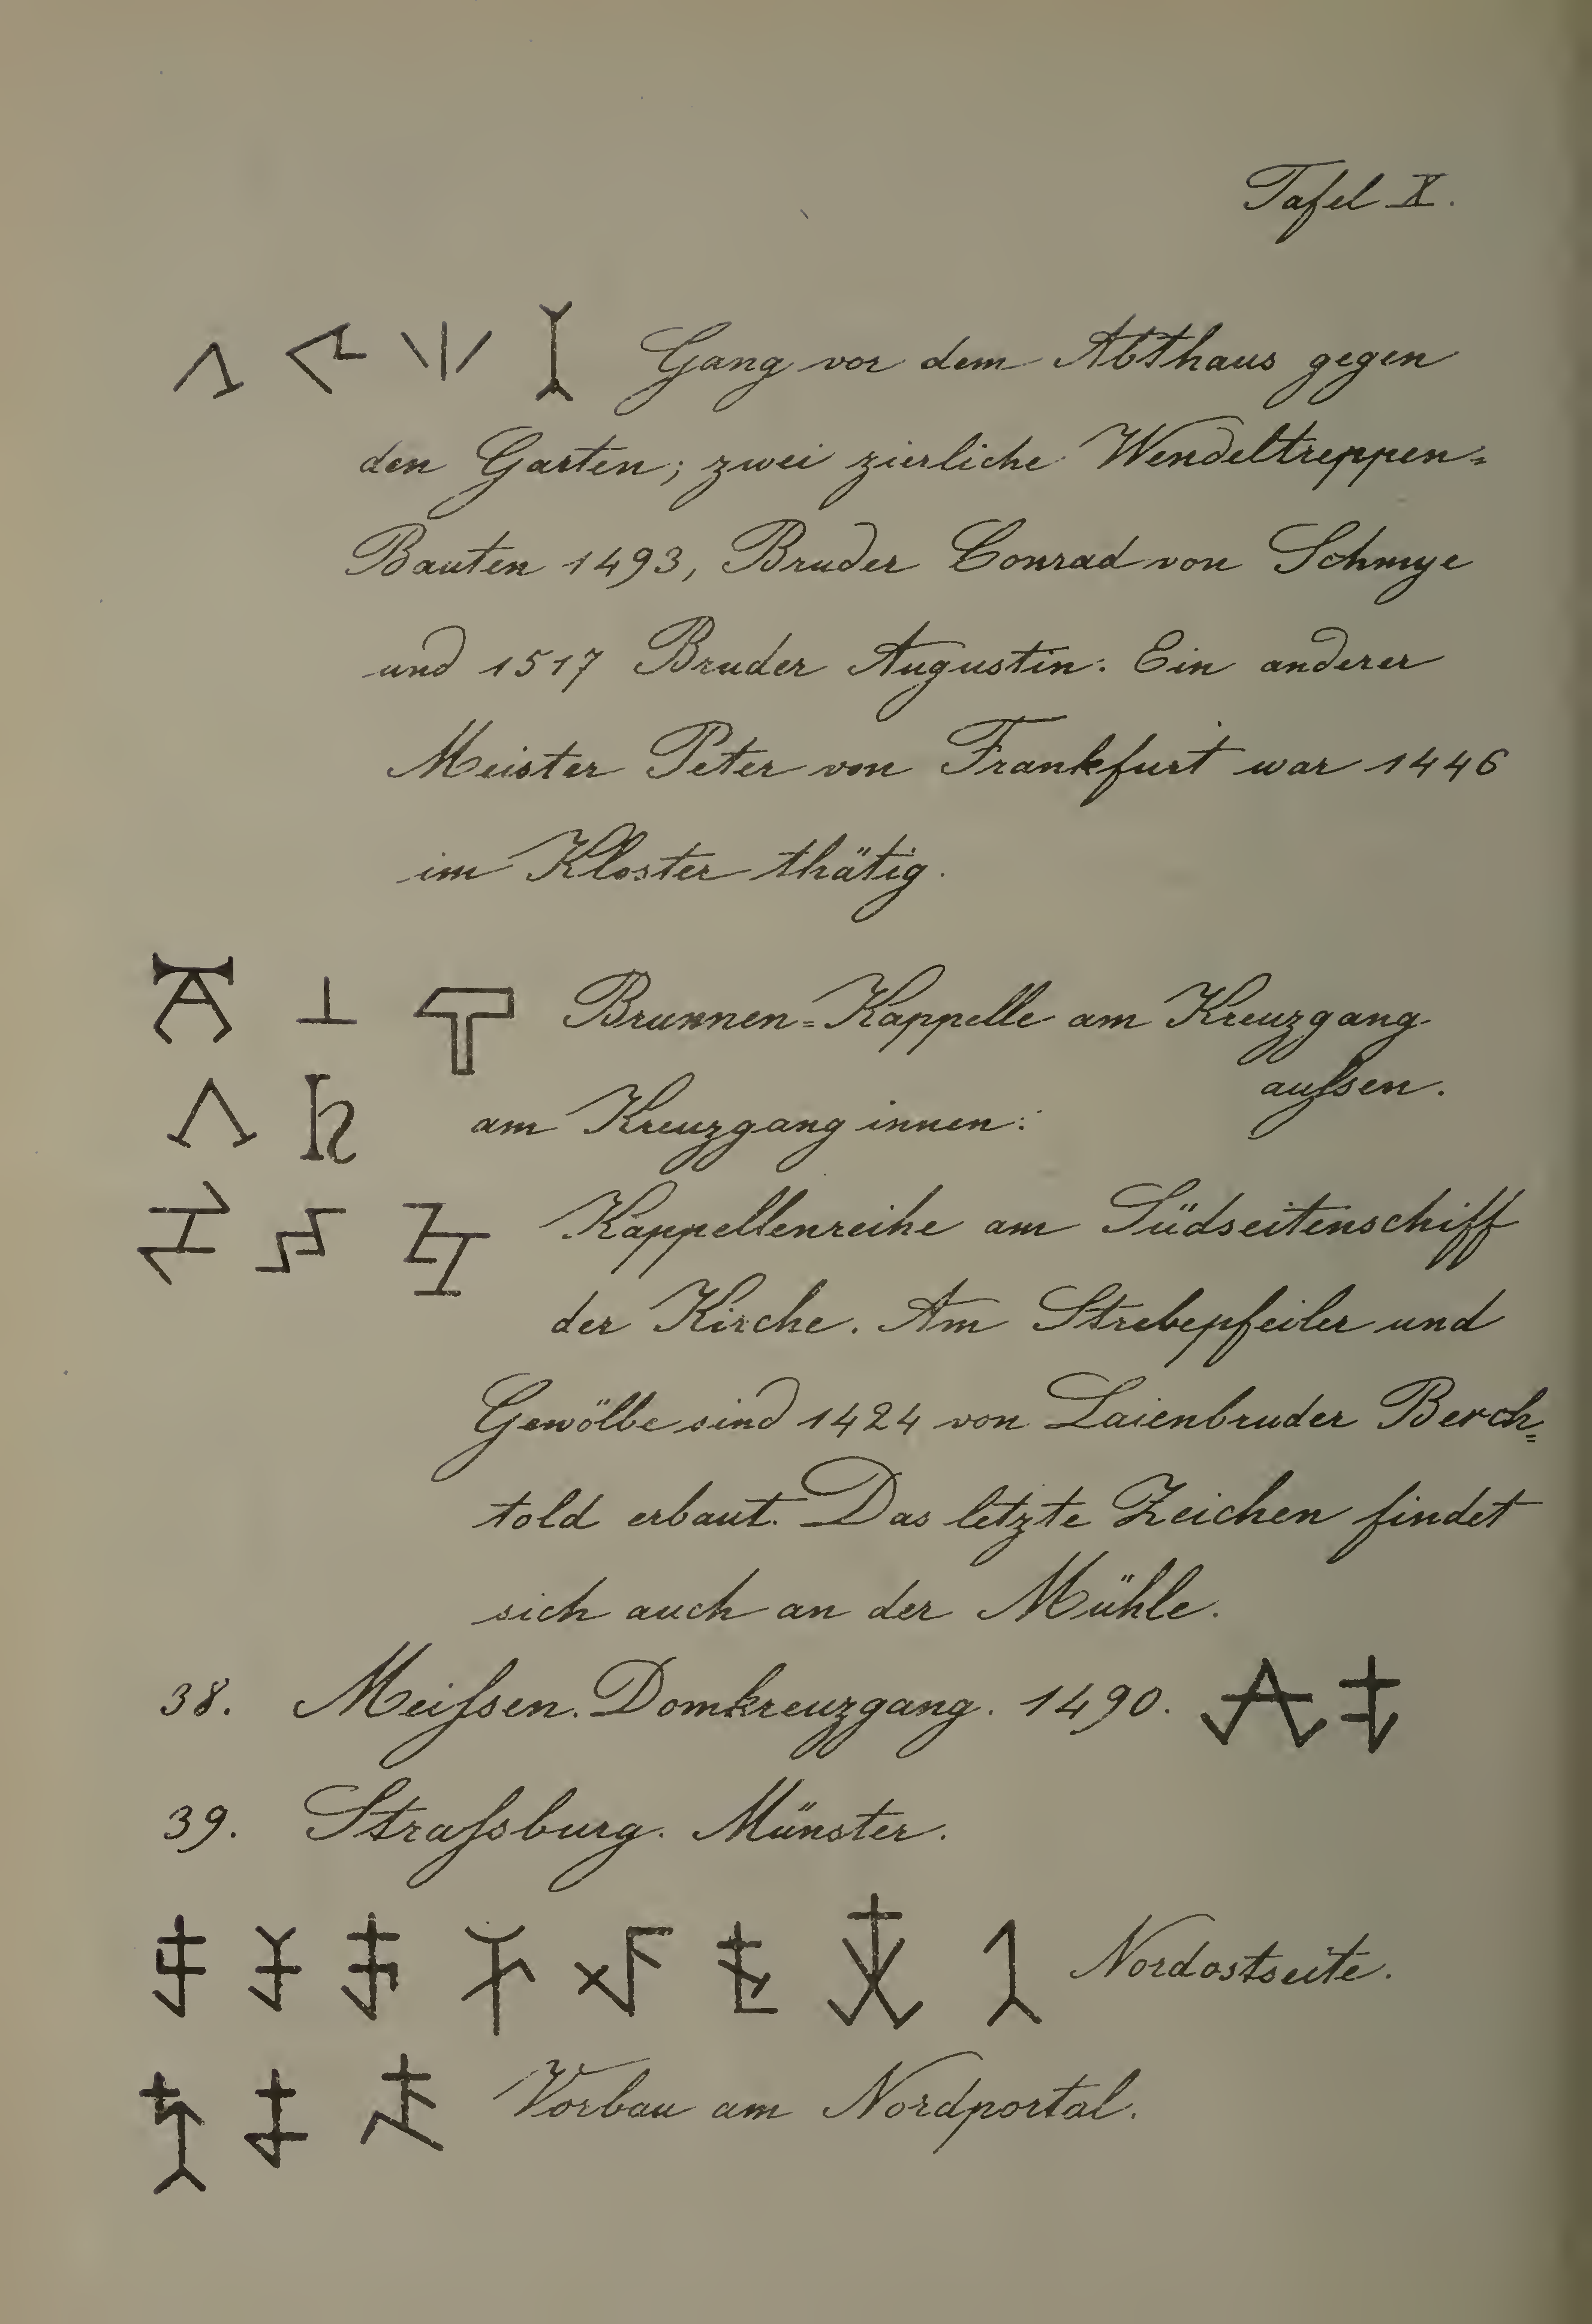 Tafel X.
Gang vor dem Abthaus gegen
den Garten; zwei zierliche Wendeltreppen=
Bauten 1493, Bruder Conrad von Schmye
und 1517 Bruder Augustin. Ein anderer
Meister Peter von Frankfurt war 1446
im Kloster thätig.
Brunnen=Kappelle am Kreuzgang
aufsen.
am Kreuzgang innen:
Kappellenreihe am Südseitenschiff
der Kirche. Am Strebepfeiler und
Gewölbe sind 1424 von Laienbruder Berch=
told erbaut. Das letzte Zeichen findet
sich auch an der Mühle.
38. Meifsen. Domkreuzgang. 1490.
39. Strafsburg. Münster.
Nordostseite.
Vorbau am Nordportal.